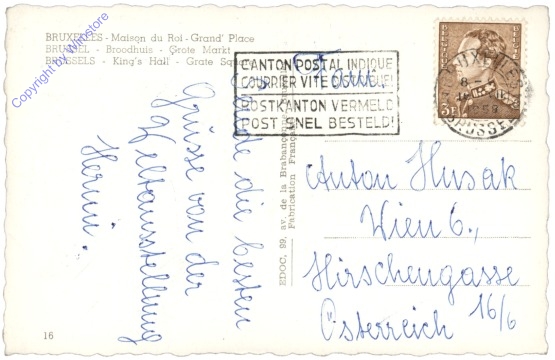 BRUXELLES - Maison du Roi - Grand' Place
BRUSSEL - Broodhuis - Grote Markt
BRUSSELS - King's Hall - Grate Square
Copyright by Winstore
CANTON POSTAL INDIQUÉ
COURRIER VITE DISTRIBUÉ!
POSTKANTON VERMELD
POST SNEL BESTELD!
BELGIQUE
BELGIE
3F
BRUXELLES
BRUSSEL
Sende die besten
Grüsse von der
Weltausstellung
Hermi.
EDOC, 99, av. de la Brabançonne
Fabrication Française
Anton Husak
Wien 6.,
Hirschengasse
16/6
Österreich
16